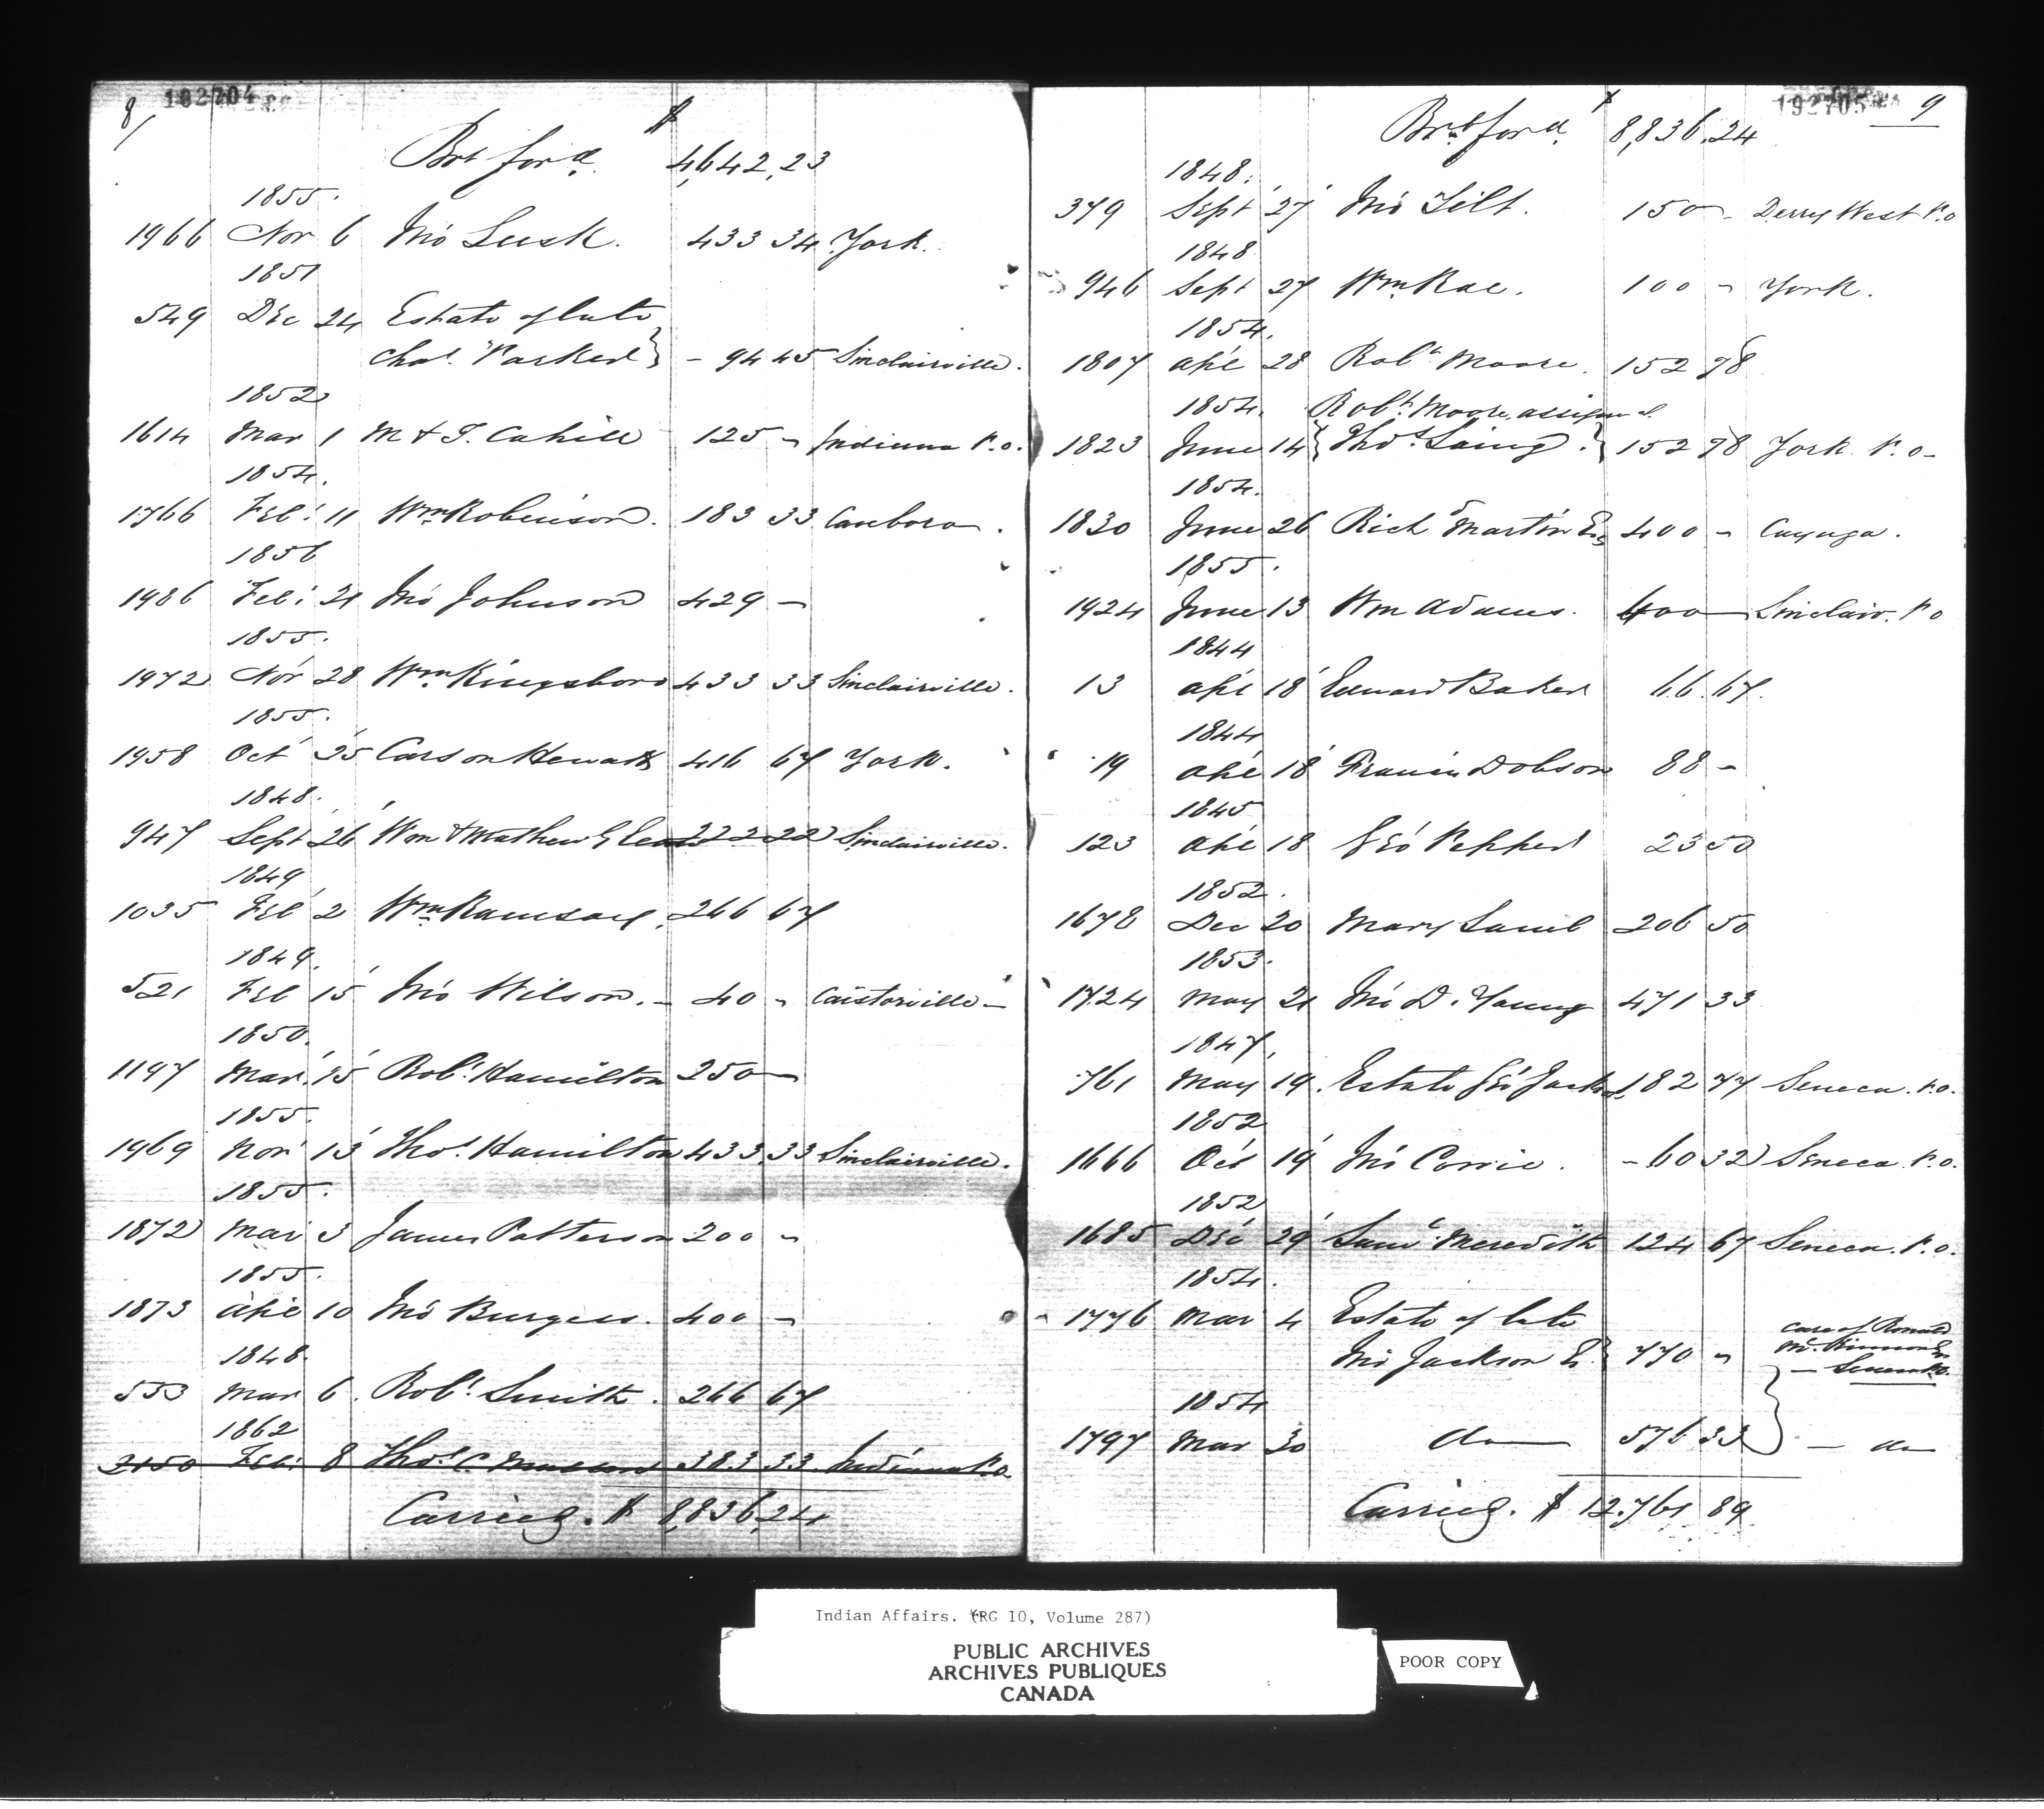 8/ 192704
$
Brt ford 4,642.23
1855.
1966 Nov 6 Jno Lusk. 433 34 York.
1851
549 Dec 24 Estate of late
Chas. Parker } - 94 45 Sinclairville.
1852
1614 Mar 1 M & T. Cahill 125 - Indiana P.O.
1854.
1766 Feb: 11 Wm Robinson. 183 33 Canboro.
1856
1986 Feb: 21 Jno Johnson 429 -
1855.
1972 Nov 28 Wm Kingsboro 433 33 Sinclairville.
1855.
1958 Oct 25 Carson 416 67 York.
1848.
947 Sept 26 Wm & Mathew 222 22 Sinclairville.
1849
1035 Feb 2 Wm Ramsay. 266 67
1849.
521 Feb 15 Jno Wilson. - 40 - Caistorville -
1850.
1197 Mar. 15 Robt. Hamilton 250 -
1855.
1969 Nov 13 Thos. Hamilton 433.33 Sinclairville.
1855.
1872 Mar 3 James Patterson 200 -
1855.
1873 Apl 10 Jno Burgess. 400 -
1848
553 Mar 6. Robt. Smith. 266 67
1862
2150 Feb: 8 Thos. C. 383 33 Indiana P.O.
Carried. $ 8,836.24
192705 9
$
Brt ford. 8,836.24
1848.
379 Sept 27 Jno Tilt. 150 - Derry West P.O
1848
946 Sept 27 Wm Rae. 100 - York.
1854.
1807 Apl 28 Robt. Moore. 152 78
1854. Robt. Moore, assignee
1823 June 14 { Thos. Laing. } 152 78 York P.O -
1854.
1830 June 26 Richd Martin Esq 400 - Cayuga.
1855.
1924 June 13 Wm Adams. 400 - Sinclair. P.O
1844
13 Apl 18 Edward Baker 66.67.
1844
19 Apl 18 Francis Dobson 88 -
1845
123 Apl 18 Geo Pepper 23 50
1852.
1678 Dec 20 Mary Lamb 206 50
1853.
1724 May 21 Jno D. Young 471 33
1847.
761 May 19. Estate Geo Jackson 182 77 Seneca. P.O.
1852
1666 Oct 19 Jno Corrie. - 60 32 Seneca. P.O.
1852
1685 Dec 29 Saml. Meredith 124 67 Seneca. P.O.
1854.
1776 Mar 4 Estate of late
Jno Jackson Er. } 770 - care of Ronald
McKinnon Esq
- Seneca P.O.
1854
1797 Mar 30 do 576 33 } - do
Carried. $ 12.761 89
Indian Affairs. (RG 10, Volume 287)
PUBLIC ARCHIVES
ARCHIVES PUBLIQUES
CANADA
POOR COPY